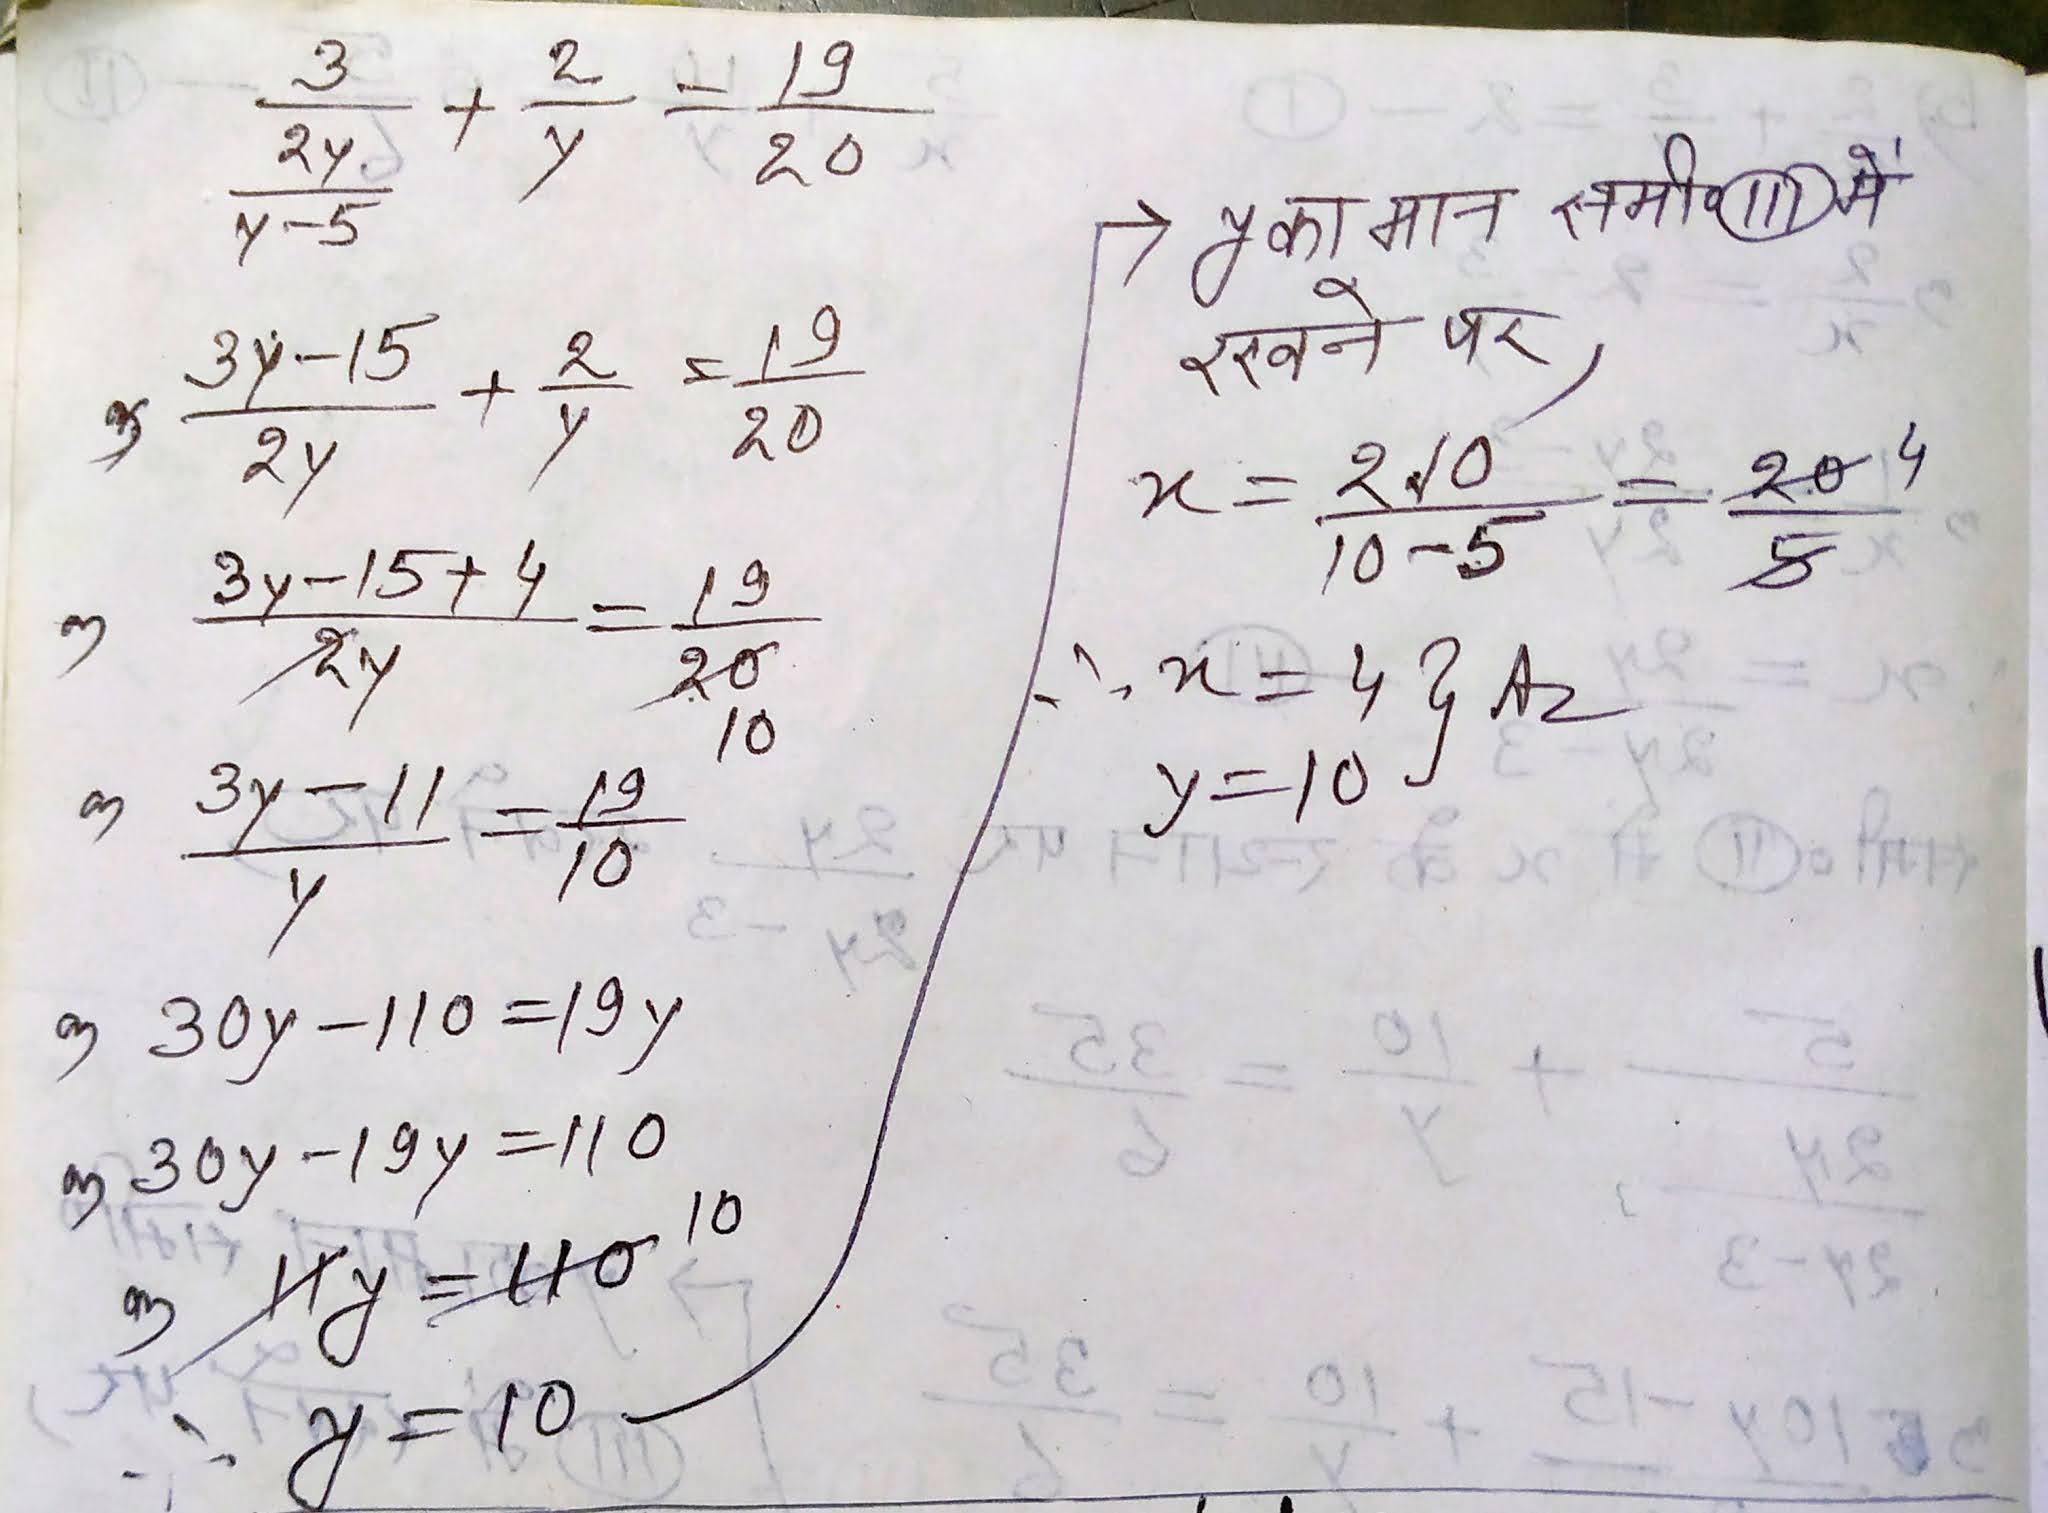 3/(2y/(y-5)) + 2/y = 19/20
⇒ (3y-15)/2y + 2/y = 19/20
⇒ (3y-15+4)/2y = 19/20 10
⇒ (3y-11)/y = 19/10
⇒ 30y-110=19y
⇒ 30y-19y=110
⇒ 11y=110 10
∴ y=10
→ y का मान समी० (III) में
रखने पर,
x = 2.10/(10-5) = 20/5 4
∴ x=4 } As
y=10